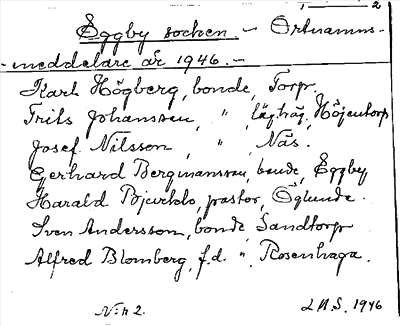 1 — 2
Eggby socken. — Ortnamns-
-meddelare år 1946. —
Karl Högberg, bonde, Torp.
Frits Johansson, " Höjentorp
Josef Nilsson, " Näs.
Gerhard Bergmansson, bonde, Eggby
Harald Bjurklo, pastor, Öglunda.
Sven Andersson, bonde Sandtorp
Alfred Blomberg, f.d. ". Rosenhaga.
N:r 2. L N.S. 1946